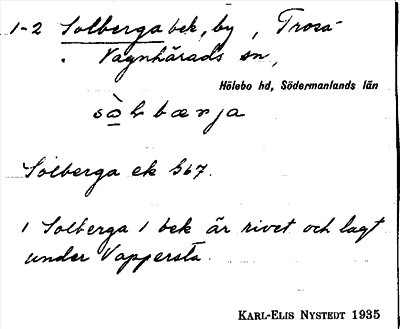 1-2 Solberga bek, by, Trosa-
Vagnhärads sn,
Hölebo hd, Södermanlands län
sò̱lbærja
Solberga ek 567.
1 Solberga 1 bek är rivet och lagt
under Vappersta.
KARL-ELIS NYSTEDT 1935